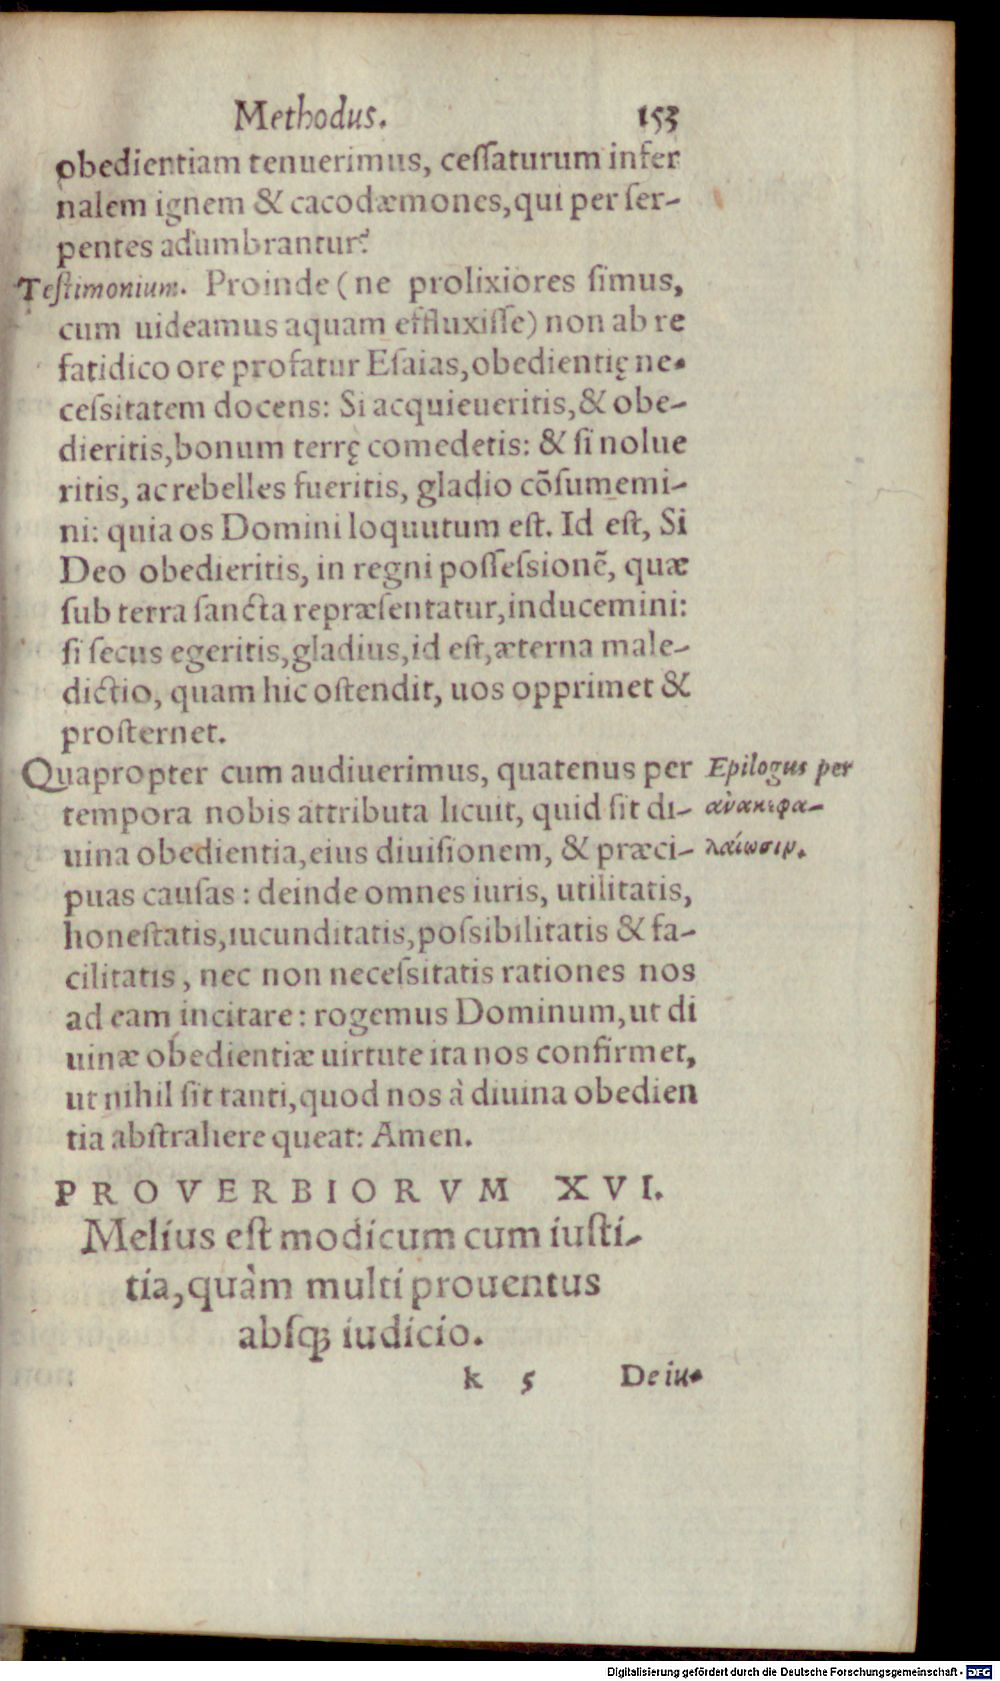 Methodus. 153
obedientiam tenuerimus, ceſſaturum infer
nalem ignem & cacodæmones, qui per ſer-
pentes adumbrantur?
Teſtimonium. Proinde (ne prolixiores ſimus,
cum uideamus aquam effluxiſſe) non ab re
fatidico ore profatur Eſaias, obedientię ne-
ceſsitatem docens: Si acquieueritis, & obe-
dieritis, bonum terrę comedetis: & ſi nolue
ritis, ac rebelles fueritis, gladio cõſumemi-
ni: quia os Domini loquutum eſt. Id eſt, Si
Deo obedieritis, in regni poſſeſsionẽ, quæ
ſub terra ſancta repræſentatur, inducemini:
ſi ſecus egeritis, gladius, id eſt, æterna male-
dictio, quam hic oſtendit, uos opprimet &
proſternet.
Quapropter cum audiuerimus, quatenus per Epilogus per
tempora nobis attributa licuit, quid ſit di- ἀνακεφα-
uina obedientia, eius diuiſionem, & præci- λαίωσιν.
puas cauſas: deinde omnes iuris, utilitatis,
honeſtatis, iucunditatis, poſsibilitatis & fa-
cilitatis, nec non neceſsitatis rationes nos
ad eam incitare: rogemus Dominum, ut di
uinæ obedientiæ uirtute ita nos confirmet,
ut nihil ſit tanti, quod nos à diuina obedien
tia abſtrahere queat: Amen.
PROVERBIORVM XVI.
Melius eſt modicum cum iuſti-
tia, quàm multi prouentus
abſq; iudicio.
k 5 De iu-
Digitalisierung gefördert durch die Deutsche Forschungsgemeinschaft - DFG